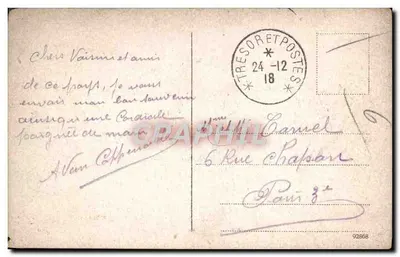 Chers Voisins et amis
de ce pays, je vous
envoie mon bon souvenir
ainsi que une Cordiale
poignée de main
A Van
TRESOR ET POSTES
*
24 -12
18
* *
CPARAMA
Camel
6 Rue Chapon
Paris 3e
92868